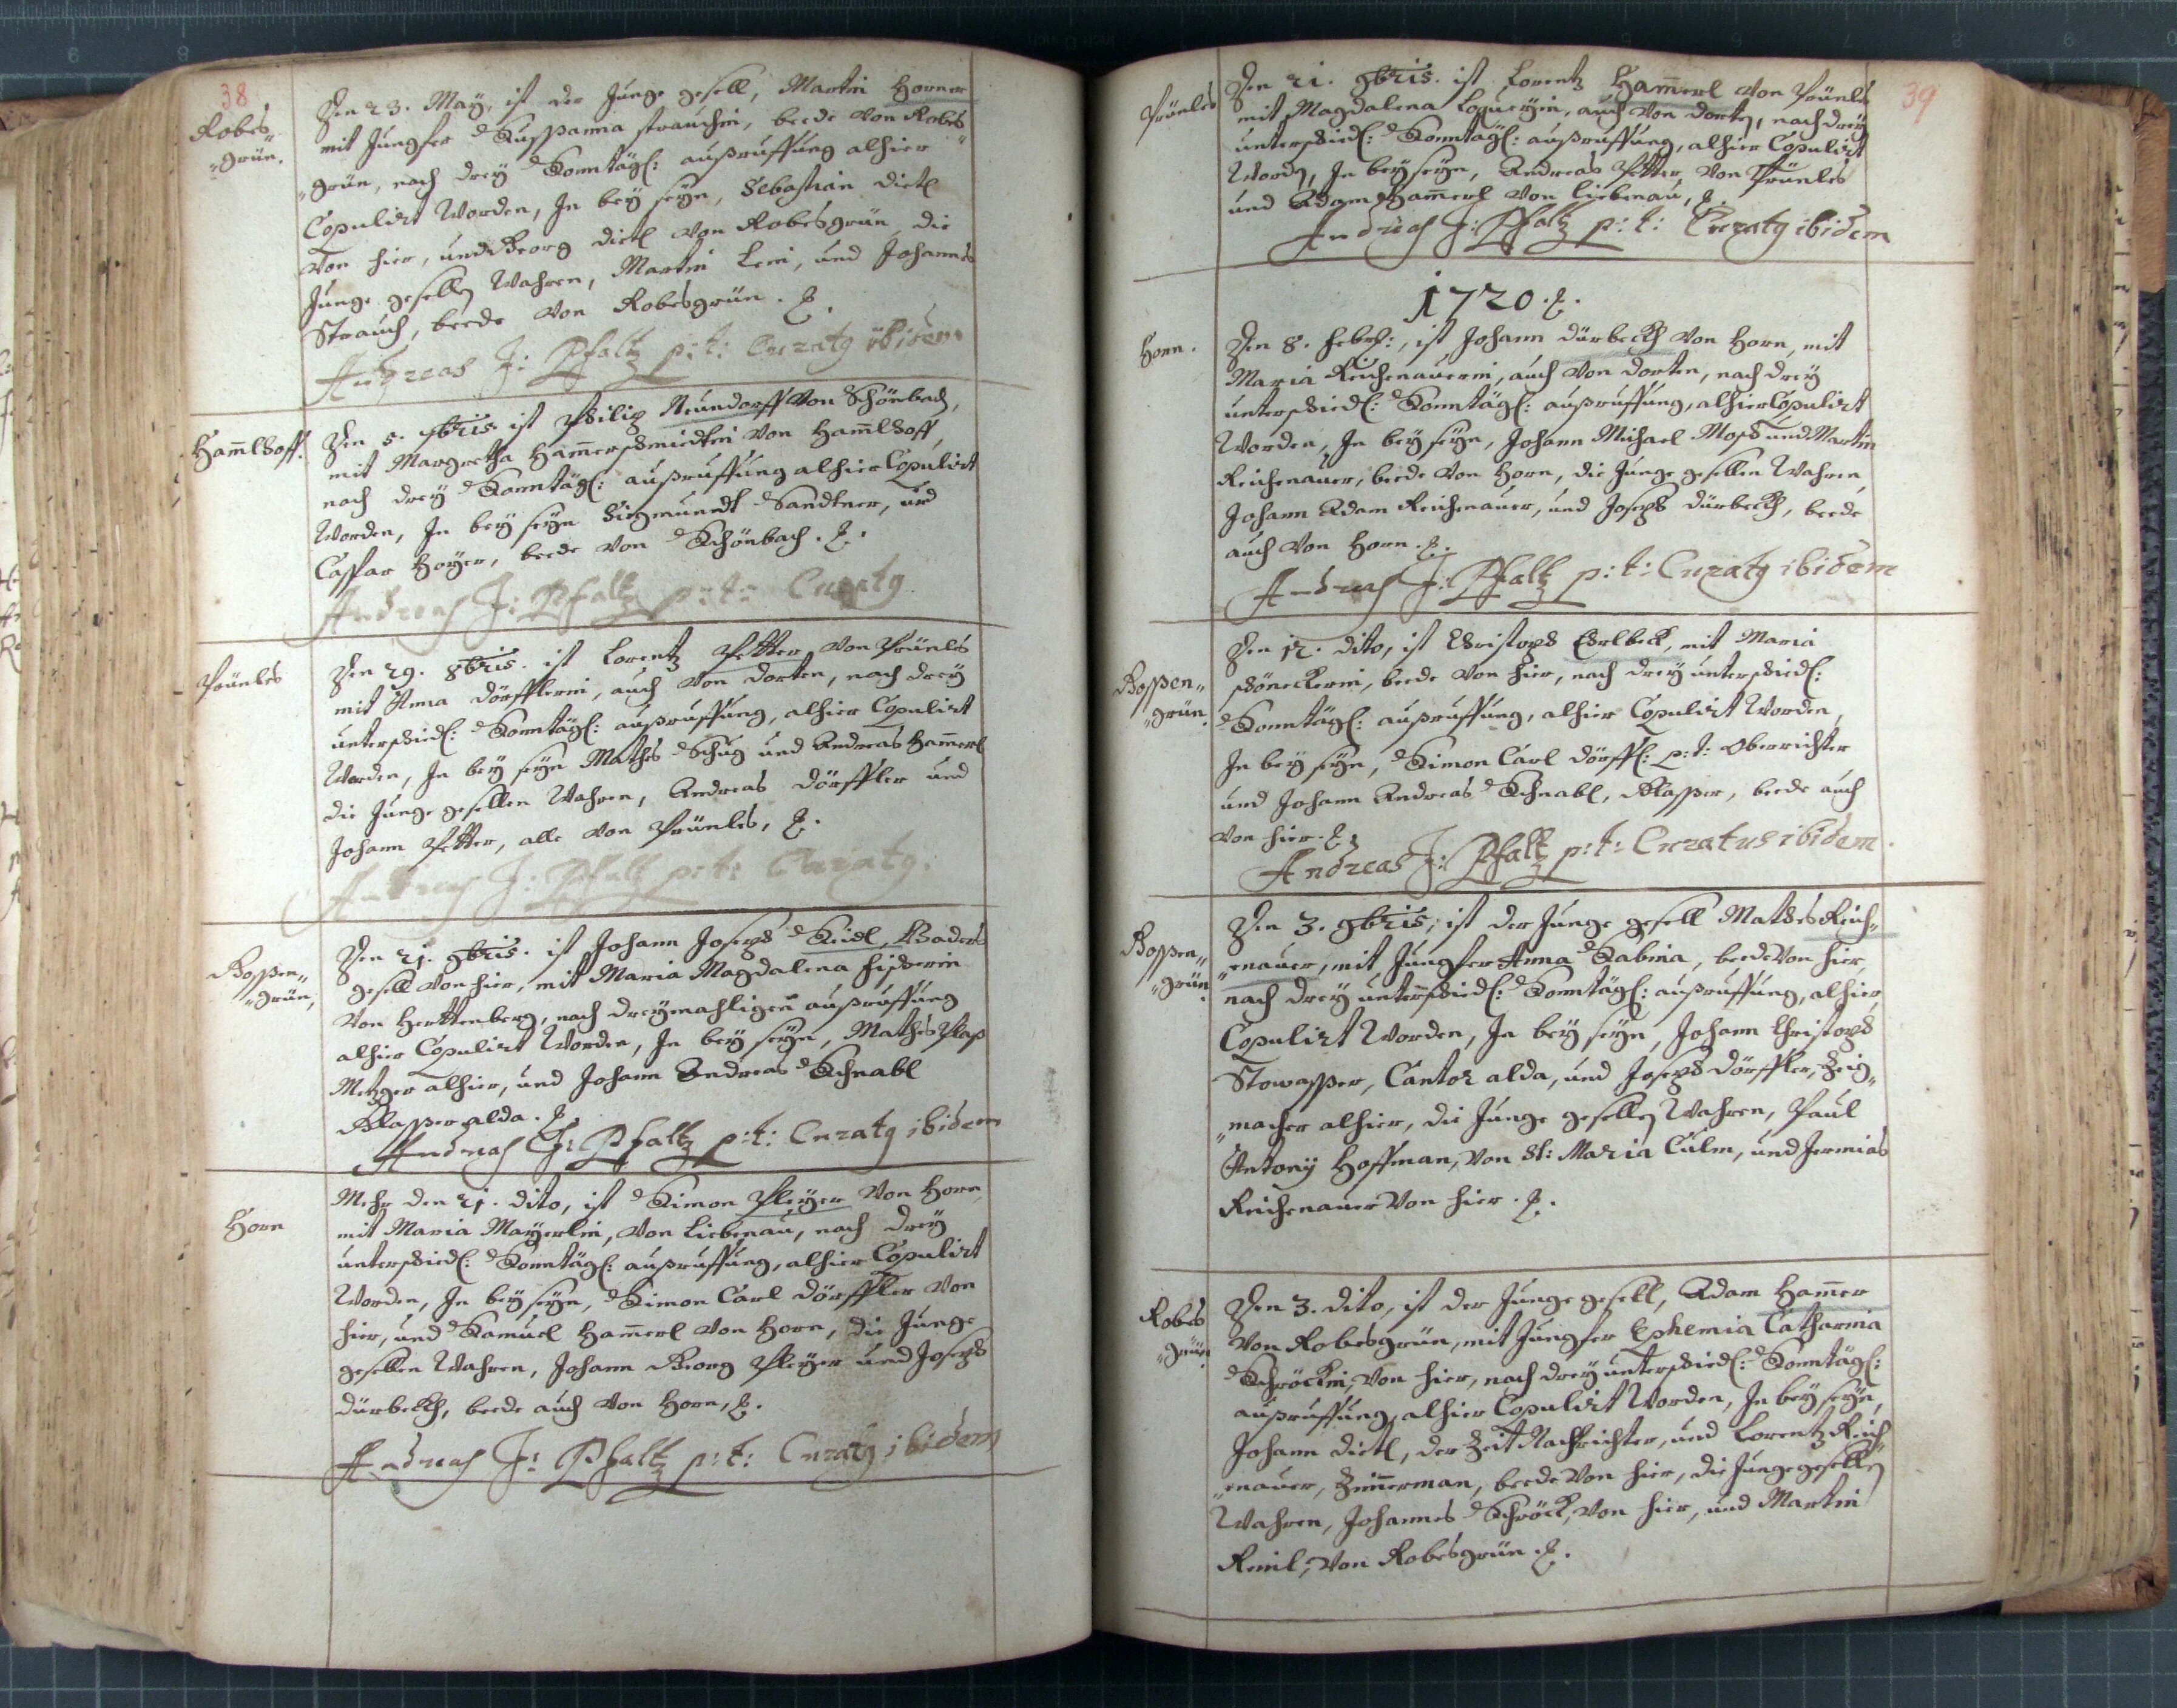 38
Robes„
„grün.
Den 23. May, ist der Junge gesell, Martin Horner
mit Jungfer Susßanna strauchin, beede von Robes„
„grün, nach drey Sonntägl: außruffung alhier
Copulirt Worden, In bey seyn, Sebastian dietl
von hier, und Georg dietl von Robesgrün, die
Junge gesellen Wahren, Martin Lein, und Johannes
Strauch, beede von Robesgrün.
Andreas J: Pfaltz p: t: Curatg ibidem
Ham̅lhoff.
Den 5. 7bris ist Philip Neundorff von Schönbach,
mit Margretha Ham̅erschmiedtin von Ham̅lhoff,
nach drey Sonntägl: außruffung alhier Copulirt
Worden, In bey seyn Siegmundt Sandtner, und
Casspar Hoyer, beede von Schönbach.
Andreas J: Pfaltz p: t: Curatg
Prünles
Den 29. 8bris. ist Lorentz Petter von Prünles
mit Anna dörfflerin, auch von dorten, nach drey
unterschiedl: Sonntägl: außruffung, alhier Copulirt
Worden, In bey seyn Mathes Schug und Andreas Ham̅erl
die Junge gesellen Wahren, Andreas dörffler und
Johann Petter, alle von Prünles,
Andreas J: Pfaltz p: t: Curatg.
Bossen„
„grün,
Den 21. 9bris. ist Johann Joseph Seidl, Baders
gesell von hier, mit Maria Magdalena fischerin
von Herttenberg, nach dreymahligen außruffung
alhier Copulirt Worden, In bey seyn, Mathes Plaß
Metzger alhier, und Johann Andreas Schnabl
Klasser alda.
Andreas J: Pfaltz p: t: Curatg ibidem
Horn
Mehr den 21. dito, ist Simon Pleyer von Horn
mit Maria Mayerlin, von Liebenau, nach drey
unterschiedl: Sonntägl: außruffung, alhier Copulirt
Worden, In bey seyn, Simon Carl dörffler von
hier, und Samuel Ham̅erl von Horn, die Junge
gesellen Wahren, Johann Georg Pleyer und Joseph
dürbeckh, beede auch von Horn,
Andreas J: Pfaltz p: t: Curatg ibidem
39
Prünles
Den 21. 9bris. ist Lorentz Ham̅erl von Prünles
mit Magdalena, auch von dorten, nach drey
unterschiedl: Sonntägl: außruffung, alhier Copulirt
Worden, In bey seyn, Andreas Petter, von Prünles
und Adam Ham̅erl von Liebenau,
Andreas J: Pfaltz p: t: Curatg ibidem
1720.
Horn.
Den 8. Febr:, ist Johann dürbeckh von Horn, mit
Maria Reichenauerin, auch von dorten, nach drey
unterschiedl: Sonntägl: außruffung, alhier Copulirt
Worden, In bey seyn, Johann Michael Moph und Martin
Reichenauer, beede von Horn, die Junge gesellen Wahren,
Johann Adam Reichenauer, und Joseph dürbeckh, beede
auch von Horn.
Andreas J: Pfaltz p: t: Curatg ibidem
Bossen„
„grün.
Den 12. dito, ist Christoph Ehrlbeck, mit Maria
schöneckerin, beede von hier, nach drey unterschiedl:
Sonntägl: außruffung, alhier Copulirt Worden,
In bey seyn, Simon Carl dörffl: p: t: Oberrichter
und Johann Andreas Schnabl, Klasser, beede auch
von hier.
Andreas J: Pfaltz p: t: Curatus ibidem.
Bossen„
„grün.
Den 3. 9bris, ist der Junge gesell Mathes Reich„
„enauer, mit Jungfer Anna Sabina, beede von hier,
nach drey unterschiedl: Sonntägl: außruffung, alhier,
Copulirt Worden, In bey seyn, Johann Christoph
Stowasser, Cantor alda, und Joseph dörffler, Zeig„
„macher alhier, die Junge gesellen Wahren, Paul
Antony Hoffman, von St: Maria Culm, und Jeremias
Reichenauer von hier.
Robes
„grün.
Den 3. dito, ist der Junge gesell, Adam Ham̅er
von Robesgrün, mit Jungfer Ephemia Catharina
Schröckin, von hier, nach drey unterschiedl: Sonntägl:
außruffung, alhier Copulirt Worden, In bey seyn,
Johann dietl, der Zeit Nachrichter, und Lorentz Reich„
„enauer, Zim̅erman, beede von hier, die Junge gesellen
Wahren, Johannes Schröck, von hier, und Martin
Reinl, von Robesgrün.